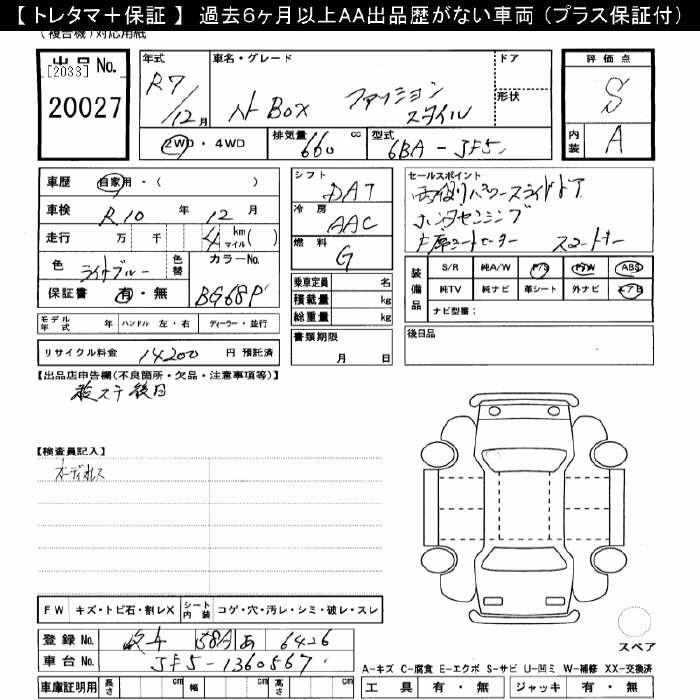 【 トレタマ＋保証 】 過去6ヶ月以上AA出品歴がない車両（プラス保証付）
(複合機)対応用紙
出品 No.
[2033]
20027
年式
R7/12月
車名・グレード
N BOX ファッションスタイル
ドア
形状
評価点
S
内装 A
2WD・4WD
排気量 660 cc
型式 6BA-JF5
車歴 自家用・( )
車検 R10 年 12 月
走行 万 千 4 km マイル ( )
色 ライトブルー 色替
カラーNo. BG68P
保証書 有・無
モデル年式 年 ハンドル 左・右 ディーラー・並行
リサイクル料金 14200 円 預託済
シフト DAT
冷房 AAC
燃料 G
乗車定員 名
積載量 kg
総重量 kg
書類期限
月 日
セールスポイント
両側パワースライドドア
ホンダセンシング
シートヒーター スマートキー
装備品
S/R 純A/W P/S P/W ABS
純TV 純ナビ 革シート 外ナビ エアB
ナビ型番：
後日品
【出品店申告欄(不良箇所・欠品・注意事項等)】
後日
【検査員記入】
オーディオレス
FW キズ・トビ石・割レX シート内装 コゲ・穴・汚レ・シミ・破レ・スレ
登録 No. 岐阜 58A あ 6426
車台 No. JF5-1360567
車庫証明用 長さ cm 幅 cm 高さ cm
スペア
A-キズ C-腐食 E-エクボ S-サビ U-凹ミ W-補修 XX-交換済
工具 有・無 ジャッキ 有・無